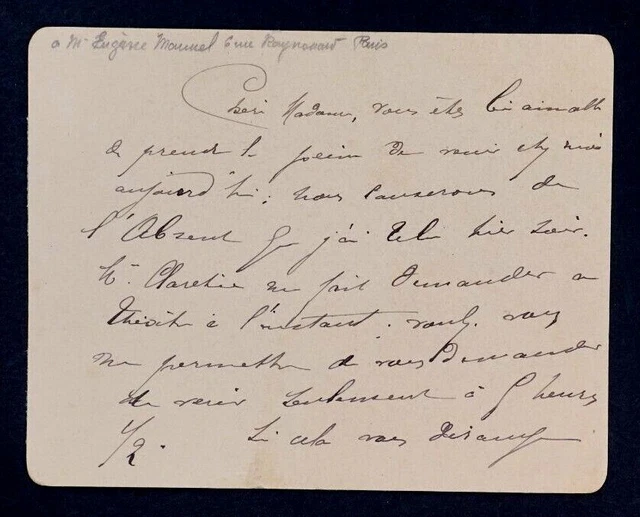 a Mr Eugène Manuel 6 rue Raynouard Paris
Chère Madame, vous êtes bien aimable
de prendre la peine de venir chez moi
aujourd'hui; nous causerons de
l'Absent que j'ai relu hier soir.
Mr. Claretie me fait demander au
théâtre à l'instant. voulez vous
me permettre de vous demander
de venir seulement à 5 heures
1/2. Si cela vous dérange